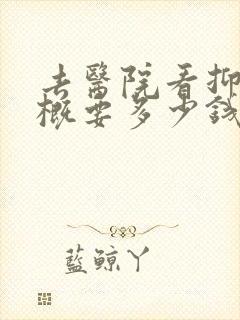 去醫院看抑
概要多少錢
藍鯨丫